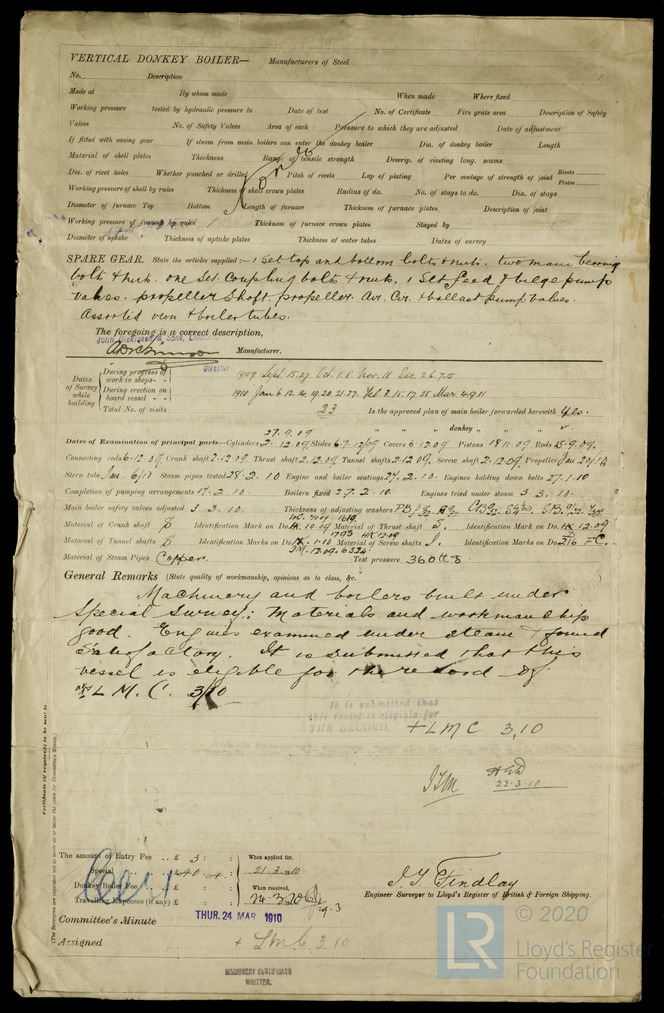 VERTICAL DONKEY BOILER— Manufacturers of Steel
No. Description
Made at By whom made When made Where fixed
Working pressure tested by hydraulic pressure to Date of test No. of Certificate Fire grate area Description of Safety
Valves No. of Safety Valves Area of each Pressure to which they are adjusted Date of adjustment
If fitted with easing gear If steam from main boilers can enter the donkey boiler Dia. of donkey boiler Length
Material of shell plates Thickness Range of tensile strength Descrip. of riveting long. seams
Dia. of rivet holes Whether punched or drilled Pitch of rivets Lap of plating Per centage of strength of joint Rivets Plates
Working pressure of shell by rules Thickness of shell crown plates Radius of do. No. of stays to do. Dia. of stays
Diameter of furnace Top Bottom Length of furnace Thickness of furnace plates Description of joint
Working pressure of furnace by rules Thickness of furnace crown plates Stayed by
Diameter of uptake Thickness of uptake plates Thickness of water tubes Dates of survey
SPARE GEAR. State the articles supplied:— 1 Set top and bottom bolts & nuts. two main bearing
bolts & nuts. one set coupling bolts & nuts. 1 Set feed & bilge pump
valves. propeller shaft. propeller. Air. Cir. & ballast pump valves.
Assorted iron & boiler tubes.
The foregoing is a correct description,
John Dickinson & Sons, Limited
Manufacturer.
Director
Dates of Survey while building
During progress of work in shops - - 1909 Sept. 15. 27. Oct. 1. 8. Nov. 18 Dec. 2. 6. 7. 15
During erection on board vessel - - - 1910 Jan. 6. 12. 14. 19. 20. 21. 27. Feb. 8. 15. 17. 28 Mar. 4. 9. 11
Total No. of visits 23 Is the approved plan of main boiler forwarded herewith Yes.
" " " donkey " " "
27.9.09
Dates of Examination of principal parts—Cylinders 2.12.09 Slides 6.7.12/09 Covers 6.12.09 Pistons 18.11.09 Rods 15.9.09.
Connecting rods 6.12.09 Crank shaft 2.12.09 Thrust shaft 2.12.09 Tunnel shafts 2.12.09 Screw shaft 2.12.09 Propeller Jan. 20/10
Stern tube Jan. 6/10 Steam pipes tested 28.2.10 Engine and boiler seatings 24.2.10 Engines holding down bolts 27.1.10
Completion of pumping arrangements 17.2.10. Boilers fixed 27.2.10 Engines tried under steam 3.3.10.
Main boiler safety valves adjusted 3.3.10 Thickness of adjusting washers
Material of Crank shaft Identification Mark on Do. Material of Thrust shaft S. Identification Mark on Do.
Material of Tunnel shafts Identification Marks on Do. Material of Screw shafts Identification Marks on Do.
Material of Steam Pipes Copper. Test pressure 360 lbs
General Remarks (State quality of workmanship, opinions as to class, &c.
Machinery and boilers built under
Special Survey: Materials and workmanship
good. Engines examined under steam & found
Satisfactory. It is submitted that this
vessel is eligible for the record of
L M. C. 3/10
It is submitted that
this vessel is eligible for
THE RECORD. + LMC 3,10
22.3.10
Certificate (if required) to be sent to
(The Surveyors are requested not to write on or below the space for Committee's Minute.)
The amount of Entry Fee .. £ 3 : : When applied for,
Special .. .. £ 40 . 4 . : 21.3.1910
Donkey Boiler Fee .. £ : : When received,
Travelling Expenses (if any) £ : :
J. T. Findlay
Engineer Surveyor to Lloyd's Register of British & Foreign Shipping.
Committee's Minute THUR. 24 MAR 1910
Assigned + LMC 3.10
MACHINERY CERTIFICATE
WRITTEN.
LR © 2020
Lloyd's Register
Foundation